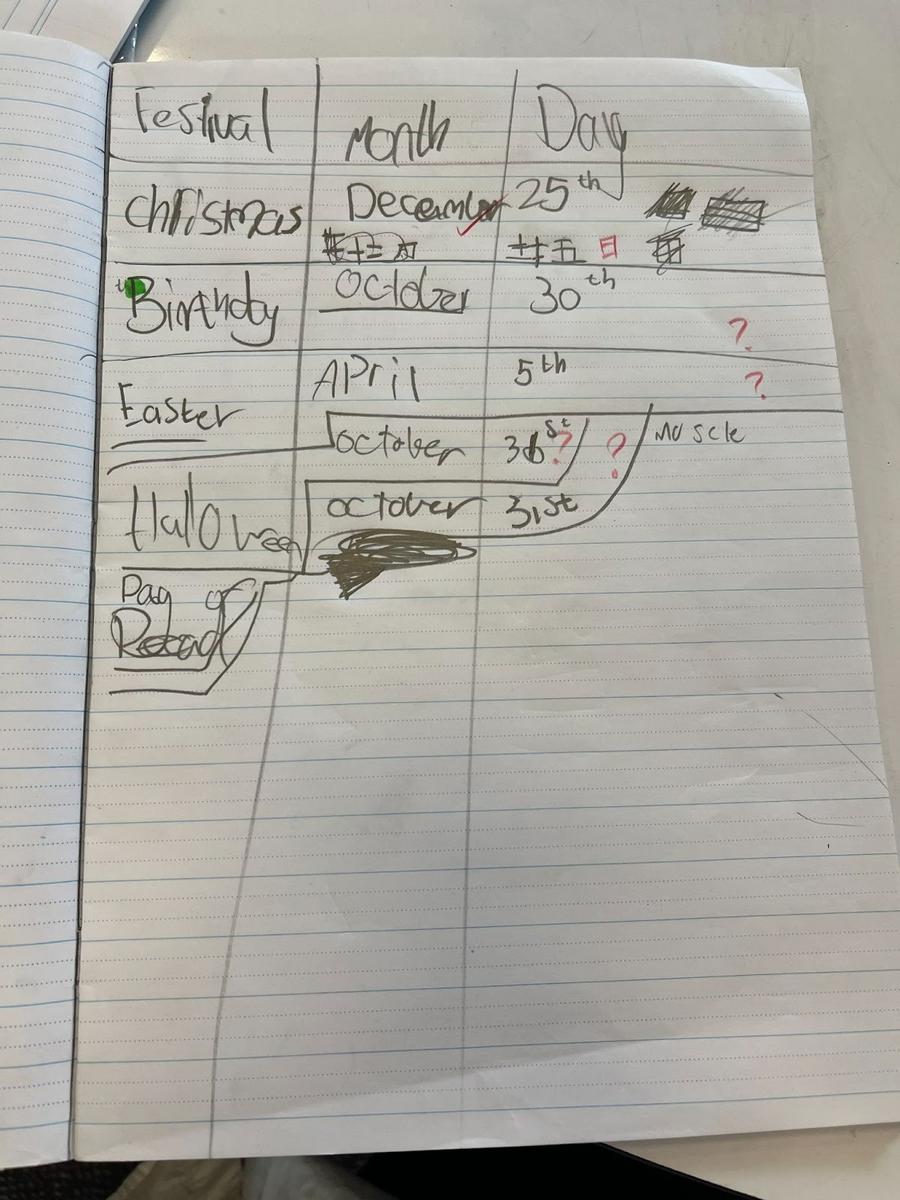 Festival Month Day
Christmas December 25th
十二月 廿五 日
Birthday October 30th
?
Easter April 5th
?
october ? ? Muscle
Halloween october 31st
Day of